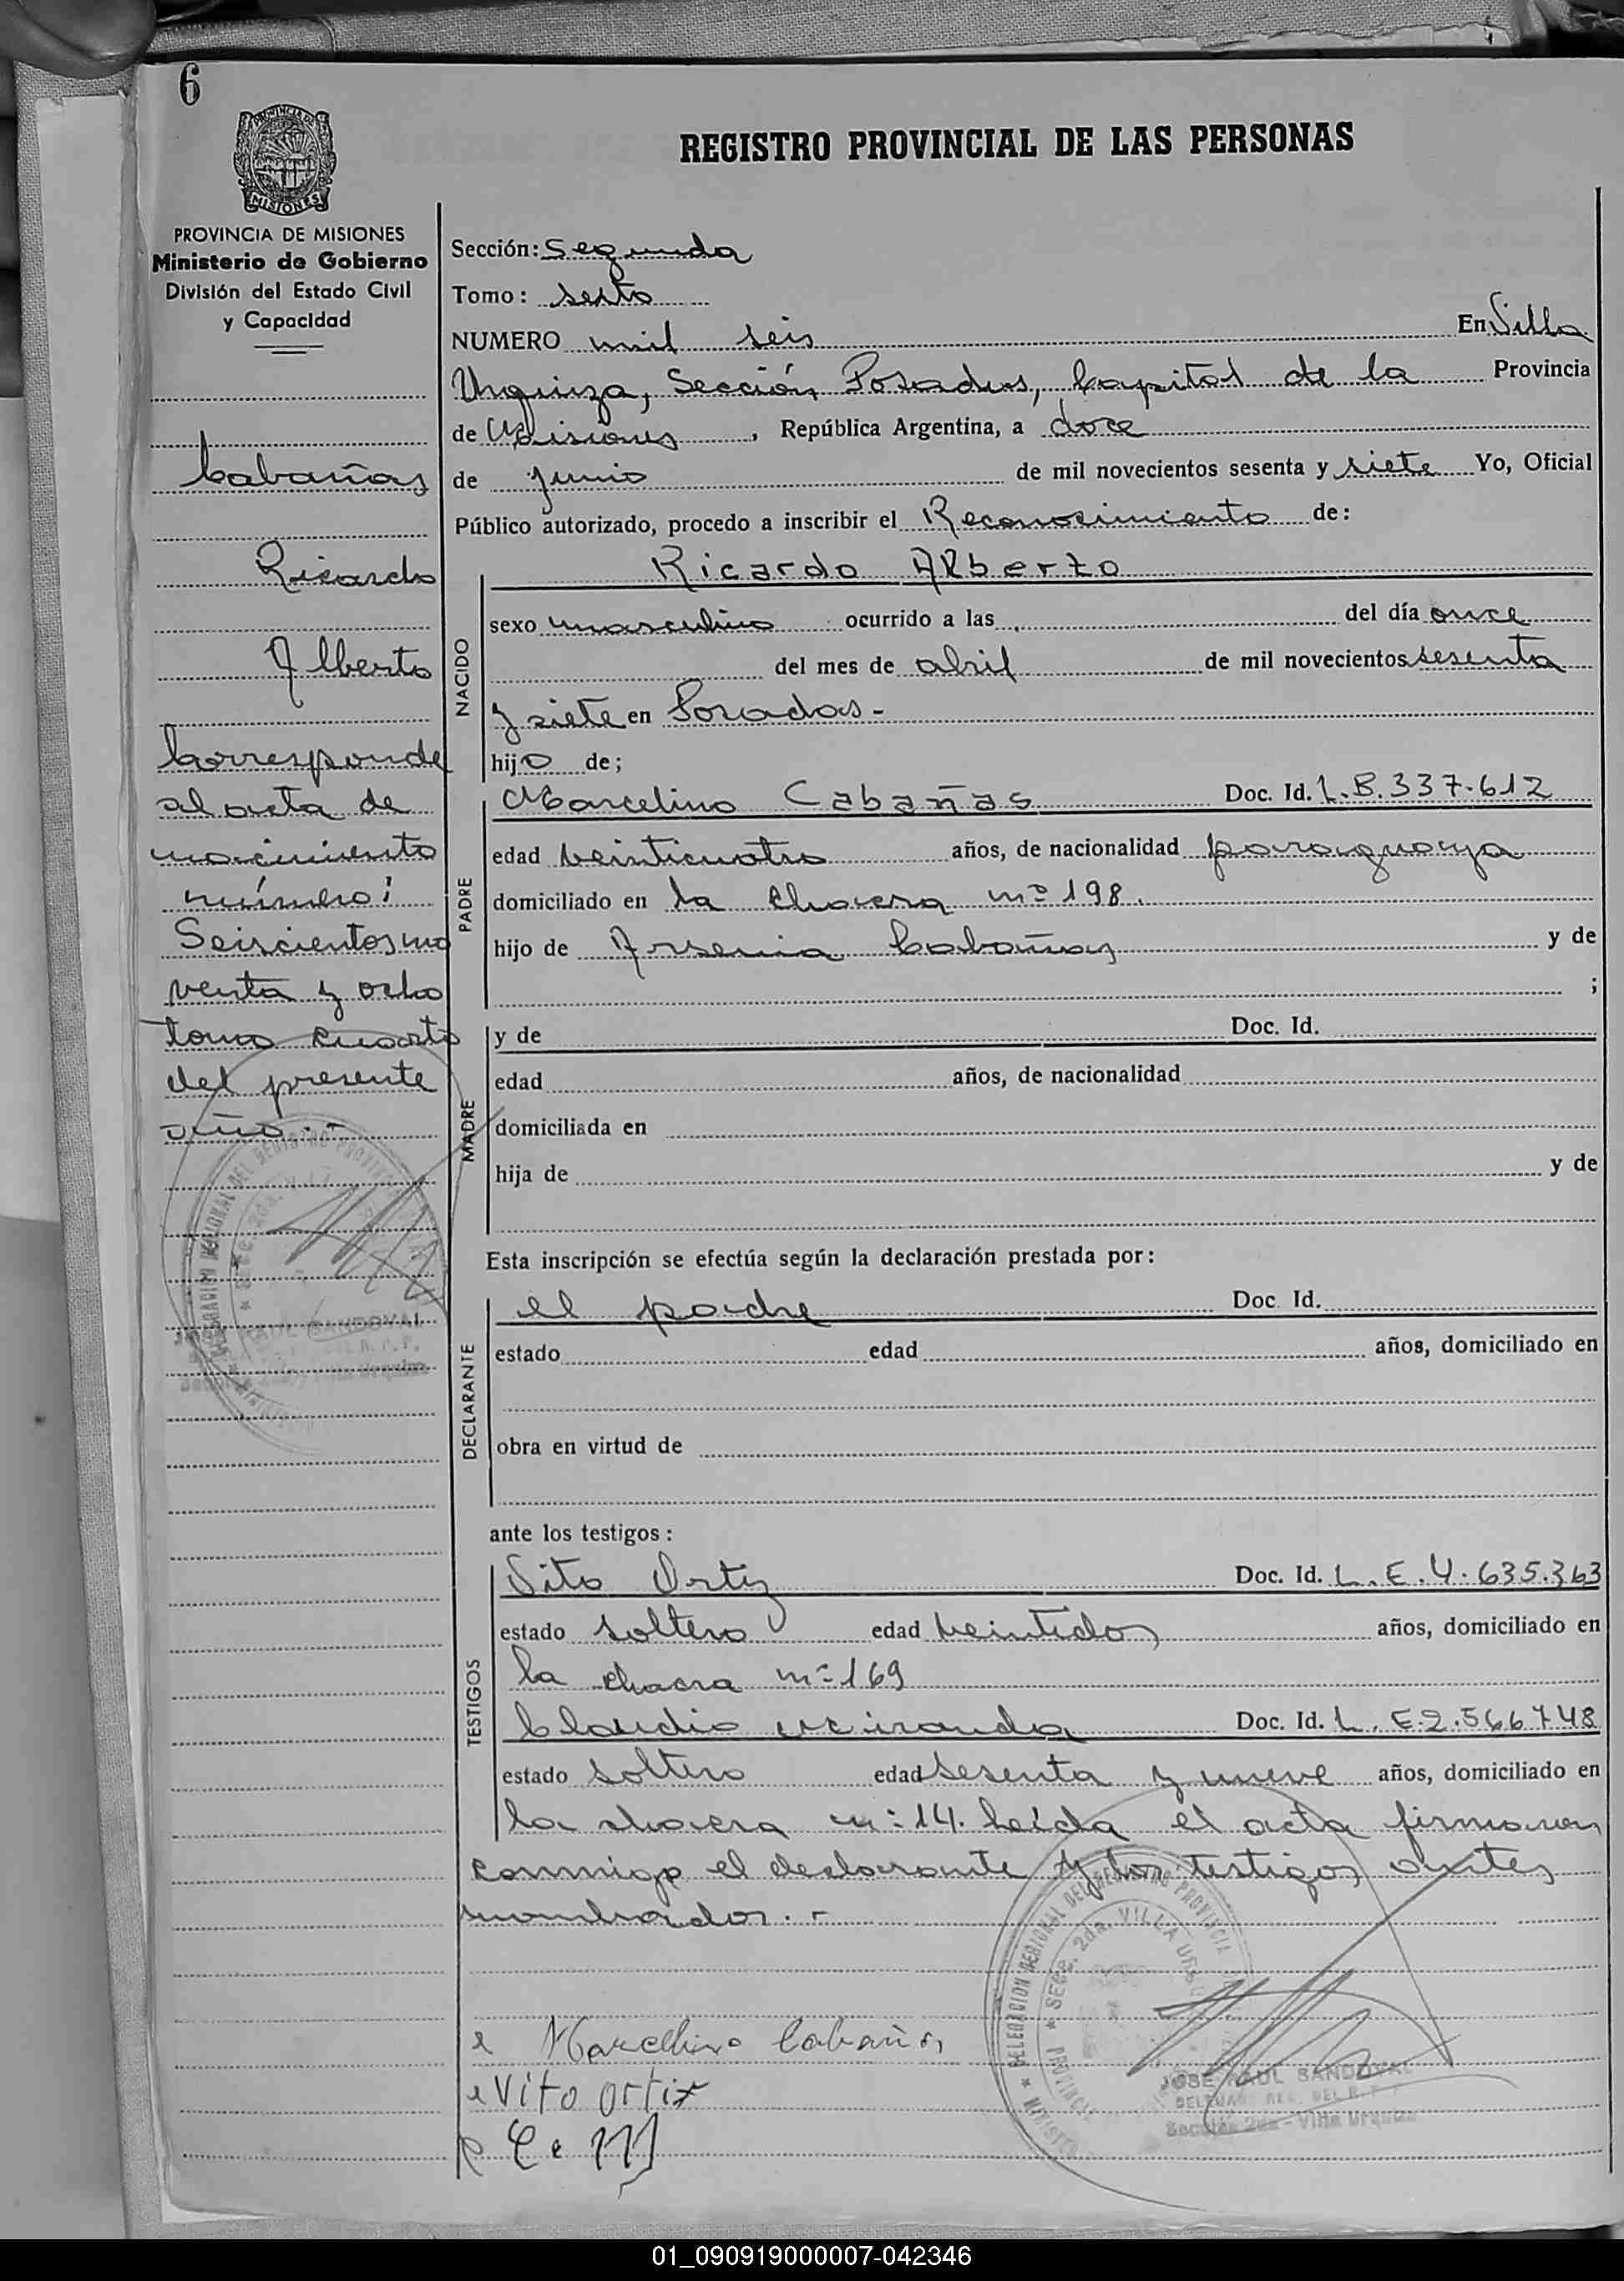 6
PROVINCIA DE MISIONES
REGISTRO PROVINCIAL DE LAS PERSONAS
PROVINCIA DE MISIONES
Ministerio de Gobierno
División del Estado Civil
y Capacidad
Cabañas
Ricardo
Alberto
Corresponde
al acta de
nacimiento
número:
Seiscientos no
venta y ocho
tomo cuarto
del presente
año.-
Sección: Segunda
Tomo: sexto
NUMERO mil seis En Villa
Urquiza, Sección Posadas, Capital de la Provincia
de Misiones, República Argentina, a doce
de junio de mil novecientos sesenta y siete Yo, Oficial
Público autorizado, procedo a inscribir el Reconosimiento de:
NACIDO
Ricardo Alberto
sexo masculino ocurrido a las del día once
del mes de abril de mil novecientos sesenta
y siete en Posadas-
hijo de;
PADRE
Marcelino Cabañas Doc. Id. L.B.337.612
edad veinticuatro años, de nacionalidad paraguaya
domiciliado en la chacra nº 198.
hijo de Arsenia Cabañas y de
;
MADRE
y de Doc. Id.
edad años, de nacionalidad
domiciliada en
hija de y de
Esta inscripción se efectúa según la declaración prestada por:
DECLARANTE
el padre Doc. Id.
estado edad años, domiciliado en
obra en virtud de
ante los testigos:
TESTIGOS
Vito Ortiz Doc. Id. L.E.4.635.363
estado soltero edad veintidos años, domiciliado en
la chacra nº 169
Claudio Miranda Doc. Id. L.E.2.566748
estado soltero edad sesenta y nueve años, domiciliado en
la chacra nº 14. Leída el acta firmaron
conmigo el declarante y los testigos antes
nombrados.-
Marcelino Cabañas
Vito ortiz
JOSE RAUL SANDOVAL
Sección 2da - Villa Urquiza
01_090919000007-042346